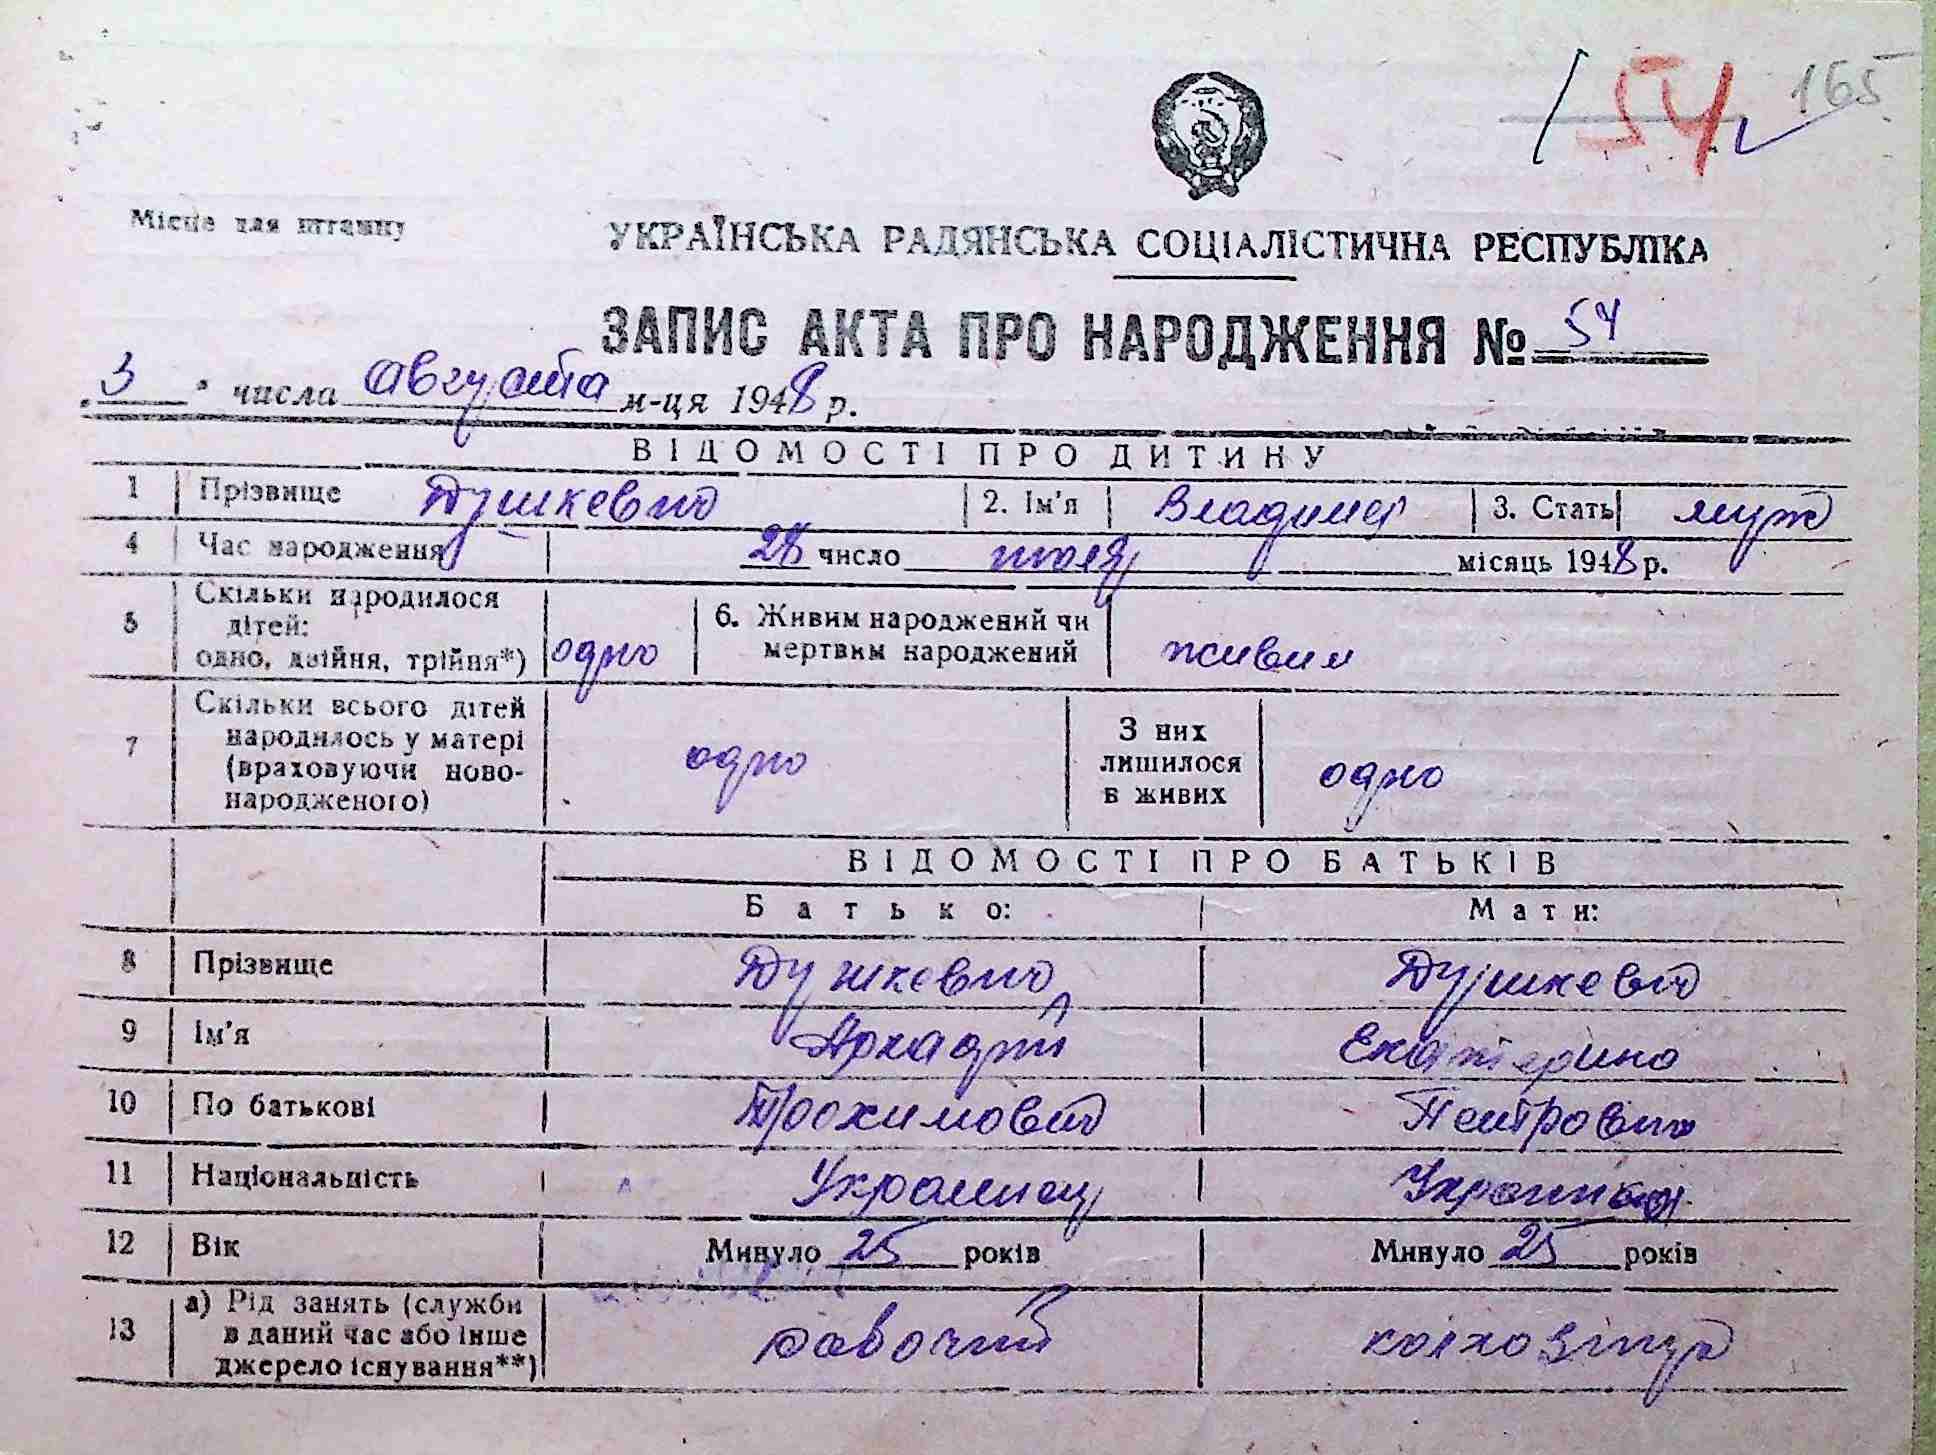 165
54
Місце для штампу
УКРАЇНСЬКА РАДЯНСЬКА СОЦІАЛІСТИЧНА РЕСПУБЛІКА
ЗАПИС АКТА ПРО НАРОДЖЕННЯ № 54
„3" числа августа м-ця 1948 р.
ВІДОМОСТІ ПРО ДИТИНУ
1 Прізвище Душкевич 2. Ім'я Владимер 3. Стать муж
4 Час народження 28 число июля місяць 1948 р.
5 Скільки народилося дітей: одно, двійня, трійня*) одно 6. Живим народжений чи мертвим народжений живим
7 Скільки всього дітей народилось у матері (враховуючи новонародженого) одно З них лишилося в живих одно
ВІДОМОСТІ ПРО БАТЬКІВ
Батько: Мати:
8 Прізвище Душкевич Душкевич
9 Ім'я Аркадий Екатерина
10 По батькові Трохимович Петровна
11 Національність Украинец Украинка
12 Вік Минуло 25 років Минуло 25 років
13 а) Рід занять (служби в даний час або інше джерело існування**) рабочий